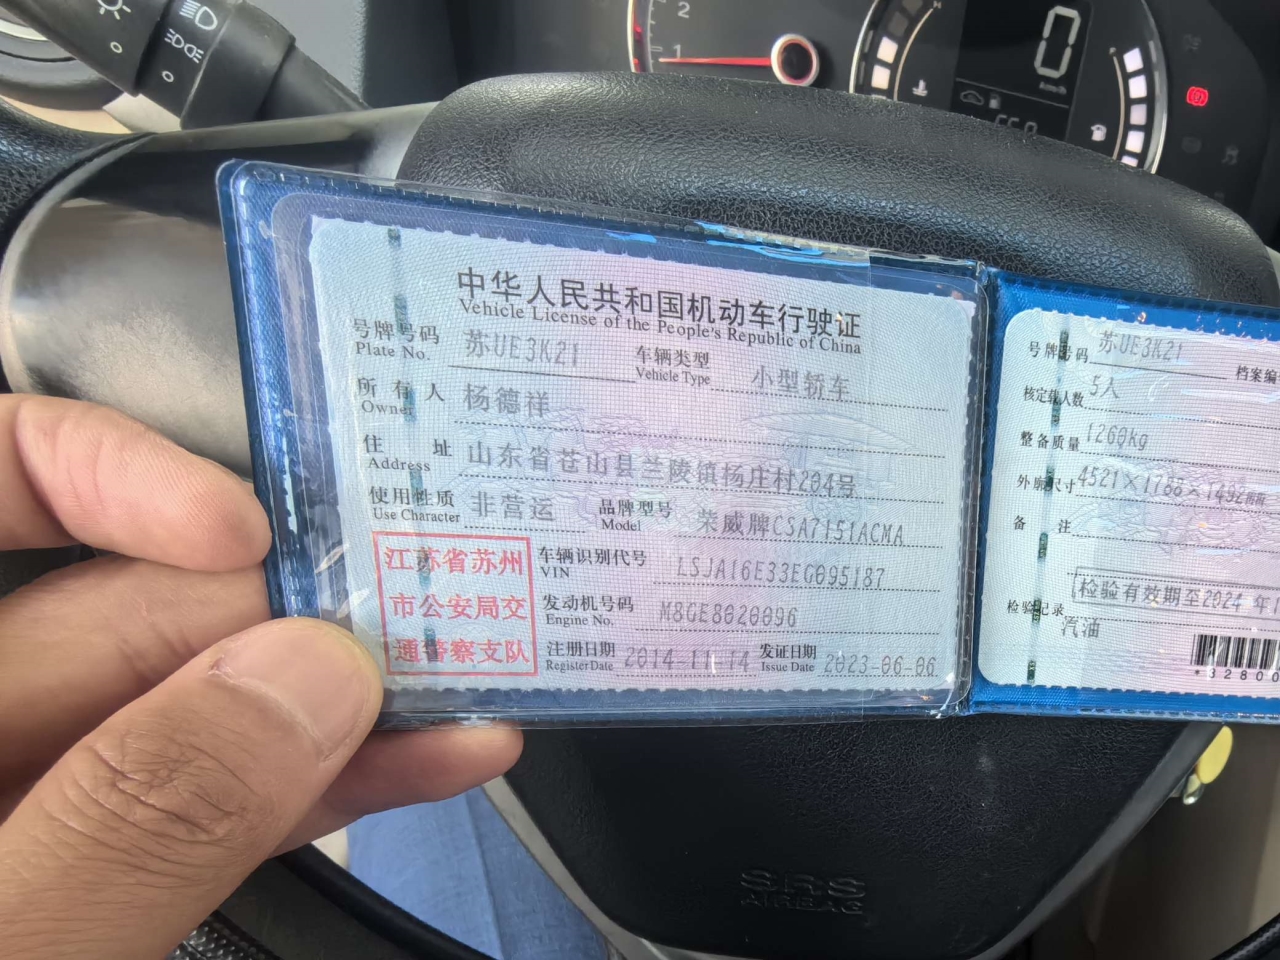 2
1
0
km/h
中华人民共和国机动车行驶证
Vehicle License of the People's Republic of China
号牌号码 苏UE3K21 车辆类型 小型轿车
Plate No. Vehicle Type
所有人 杨德祥
Owner
住址 山东省苍山县兰陵镇杨庄村204号
Address
使用性质 非营运 品牌型号 荣威牌CSA7151ACMA
Use Character Model
江苏省苏州
市公安局交
通警察支队
车辆识别代号 LSJA16E33EG095187
VIN
发动机号码 M8GE8020096
Engine No.
注册日期 2014-11-14 发证日期 2023-06-06
Register Date Issue Date
号牌号码 苏UE3K21 档案编
核定载人数 5人
整备质量 1260kg
外廓尺寸 4521×1788×1492
备注
检验有效期至2024 年
检验记录
汽油
*3280
SRS
AIRBAG